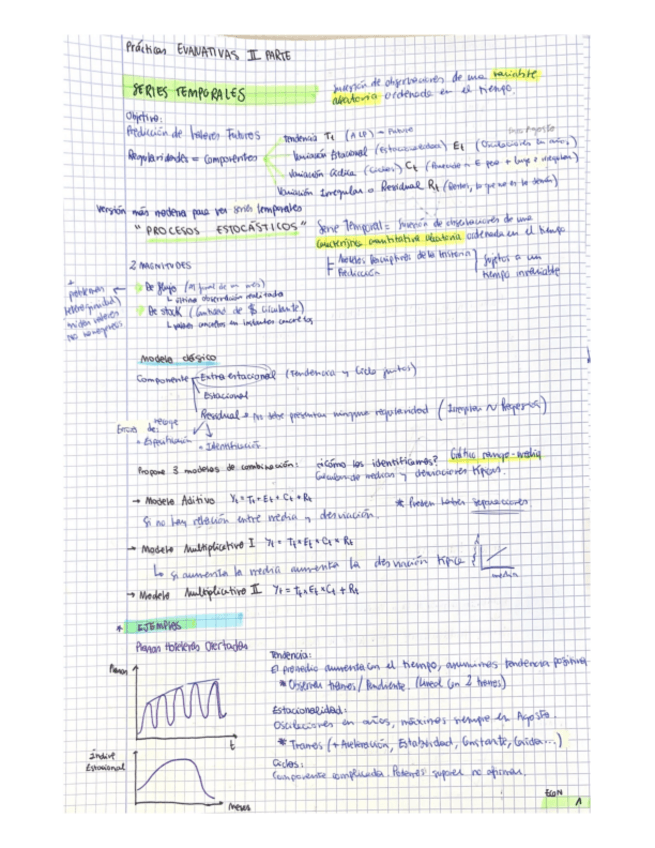 Prácticas EVANATIVAS II PARTE
SERIES TEMPORALES
Sucesión de observaciones de una variable
aleatoria ordenada en el tiempo.
Objetivo:
Predicción de Valores Futuros
Regularidades = Componentes
Tendencia Tt (A LP) - Futuro
Variación Estacional (Estacionalidad) Et (Oscilaciones en años,)
Variación Cíclica (Ciclos) Ct
Variación Irregular o Residual Rt
Versión más moderna para ver series temporales
"PROCESOS ESTOCÁSTICOS"
Serie Temporal = Sucesión de observaciones de una
característica cuantitativa aleatoria ordenada en el tiempo
Predicción
Sujetos a un
tiempo invariable
2 MAGNITUDES
De flujo
De stock (Cantidad de $ Circulante)
valores concretos en instantes concretos
+ problemas
Modelo clásico
Componente
Extra estacional (Tendencia y Ciclo juntos)
Estacional
Residual → No debe presentar ninguna regularidad
Especificación
Identificación
Propone 3 modelos de combinación:
¿Cómo los identificamos? Gráfico rango-media
Calculando medias y desviaciones típicas.
→ Modelo Aditivo Yt = Tt + Et + Ct + Rt
Si no hay relación entre media y desviación.
* Pueden haber
→ Modelo Multiplicativo I Yt = Tt * Et * Ct * Rt
↳ Si aumenta la media aumenta la desviación típica
media
→ Modelo Multiplicativo II Yt = Tt * Et * Ct + Rt
* EJEMPLOS
Plazas Hoteleras Ofertadas
Plazas
t
Tendencia:
El promedio aumenta con el tiempo, asumimos tendencia positiva
* Observar tramos / Pendiente. (Lineal con 2 tramos)
Estacionalidad:
Oscilaciones en años, máximos siempre en Agosto.
* Tramos (+ Aceleración, Estabilidad, Constante, Caída...)
Índice
Estacional
Meses
Ciclos:
Componente complicada. Podemos suponer no afirmar.
ECON
1